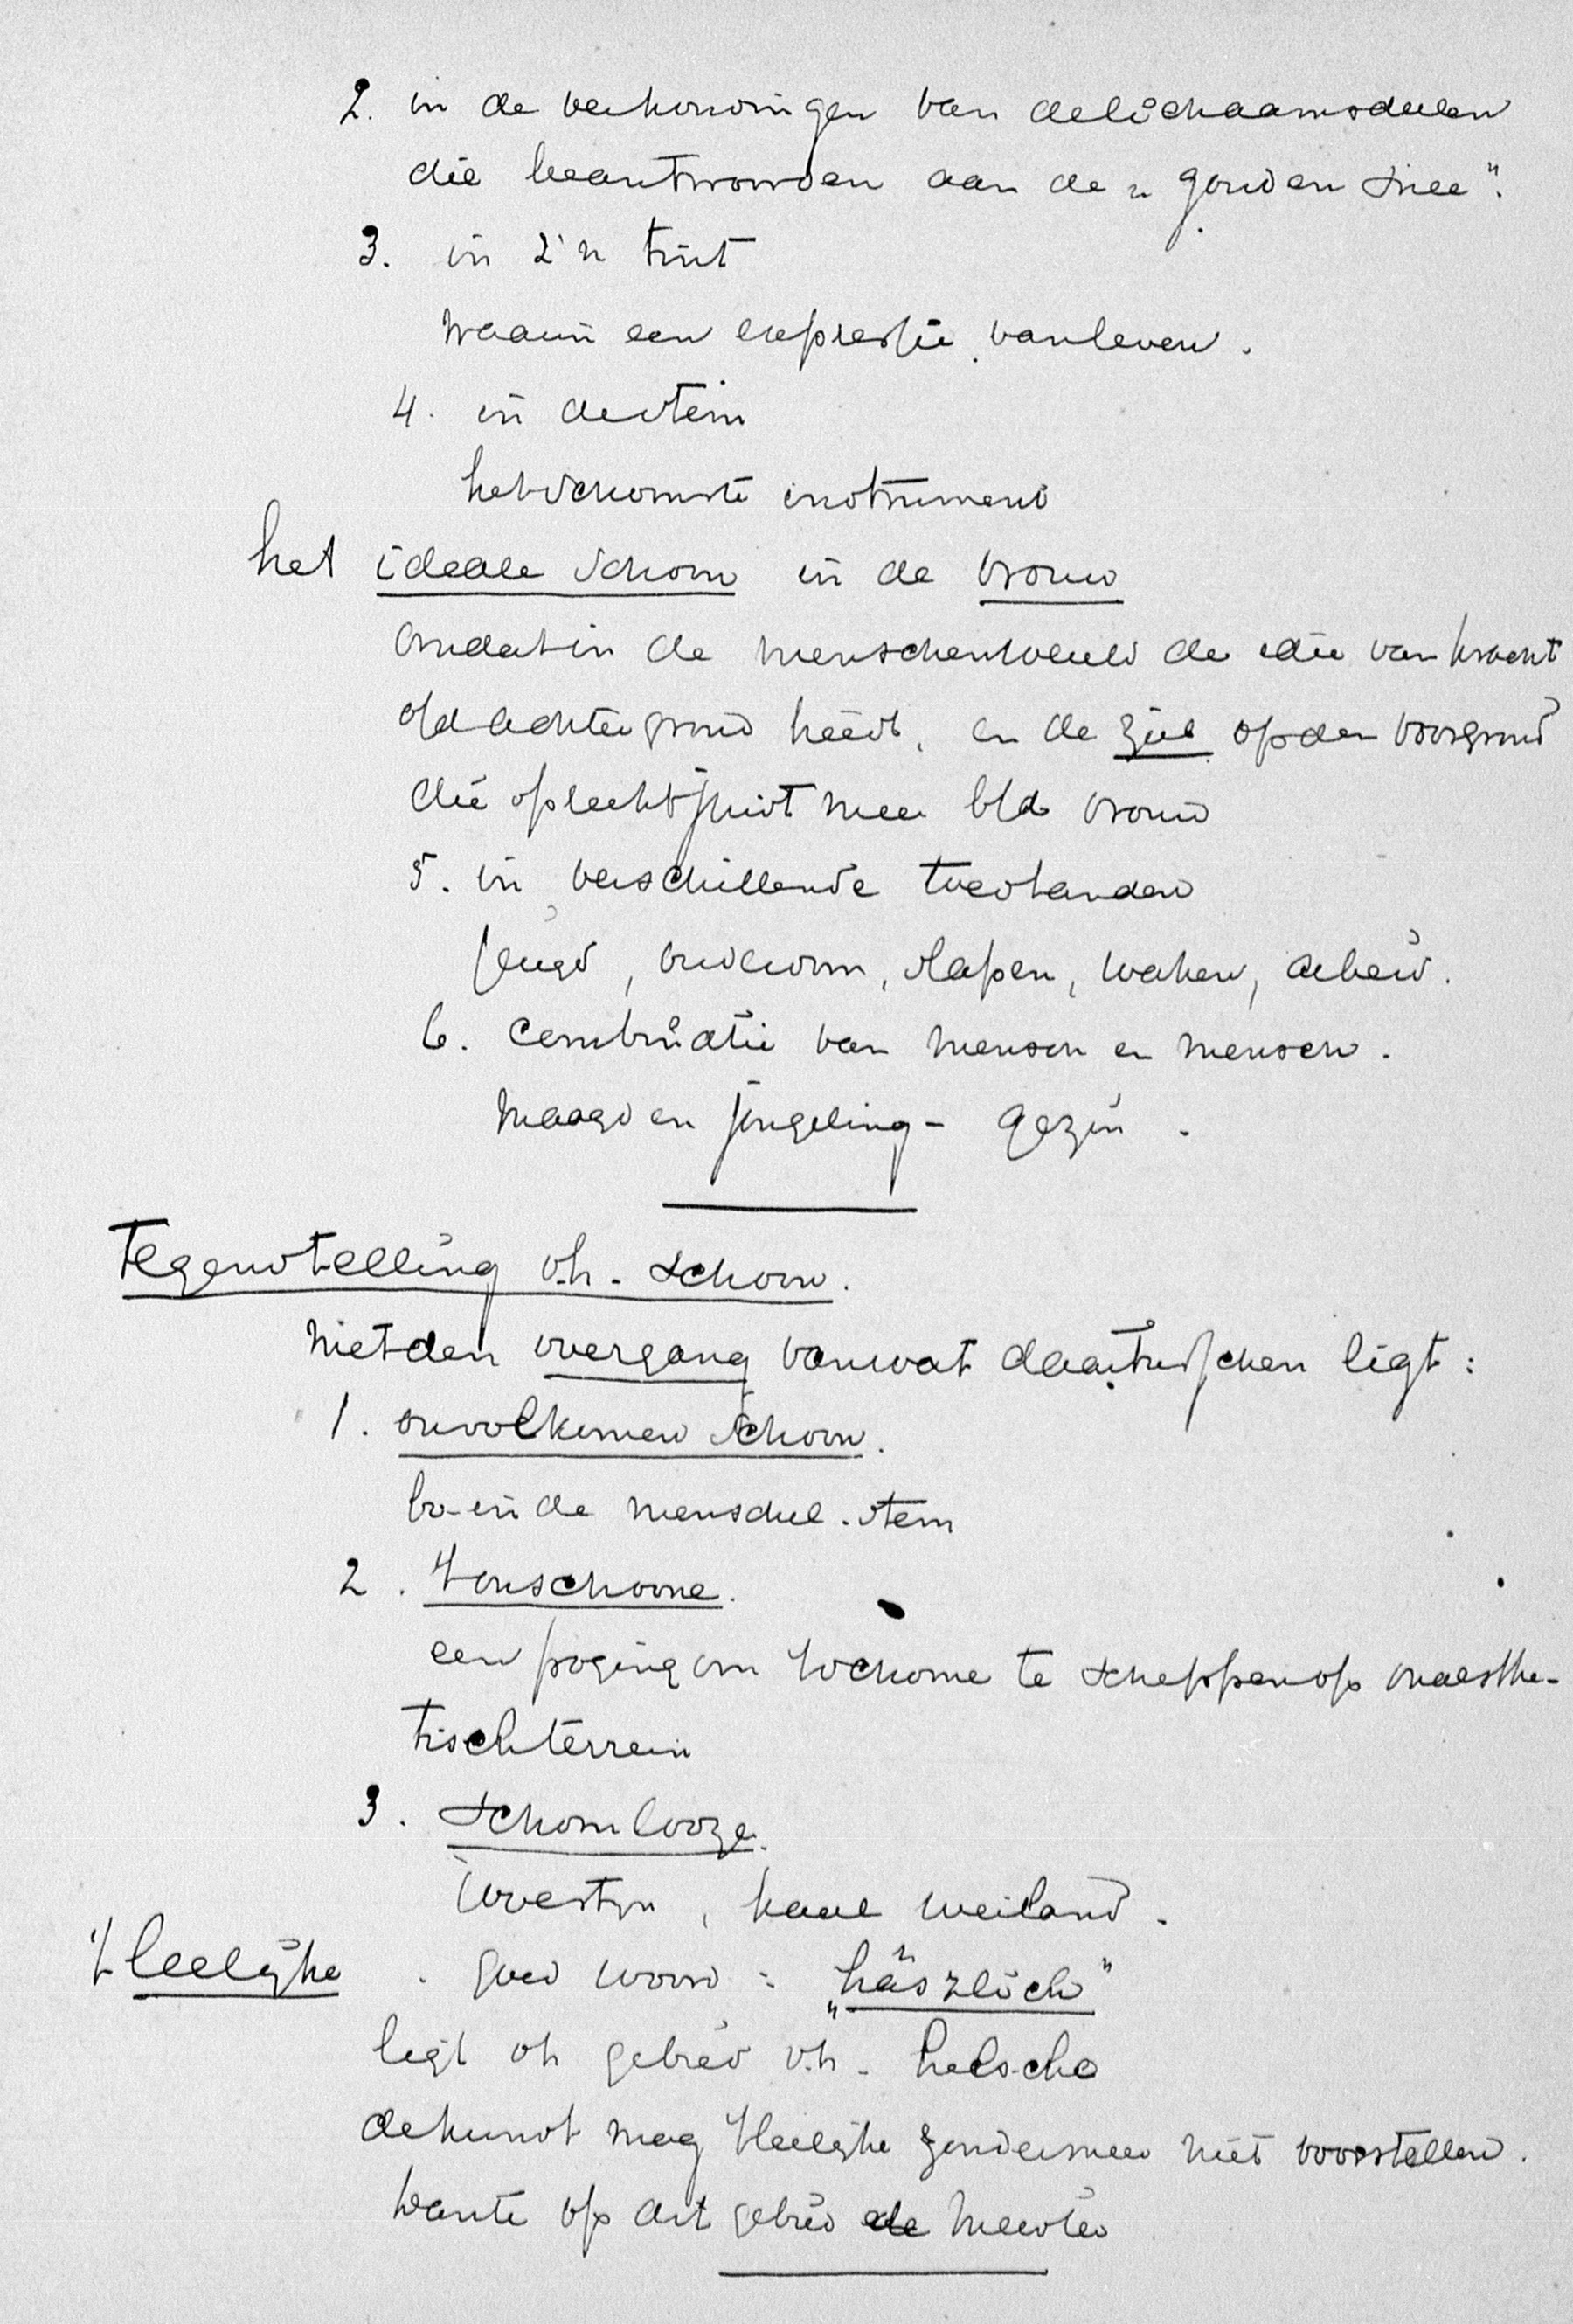 2. in de verhoudingen van de lichaamsdeelen
die beantwoorden aan de „gouden snee".
3. in z'n tint
waarin een expressie van leven.
4. in de stem
het schoonste instrument
het ideale schoon in de vrouw
omdat in de menschenwereld de idee van kracht
op d achtergrond treedt, en de ziel op den voorgrond
die oplecht juist meer b/d vrouw
5. in verschillende toestanden
jeugd, ouderdom, slapen, waken, arbeid.
6. Combinatie van mensch en mensch.
maagd en jongeling - gezin.
Tegenstelling v.h. schoon.
niet den overgang van wat daartusschen ligt:
1. onvolkomen schoon.
bv. in de menschel. stem
2. 't onschoone.
een poging om 't schoone te scheppen op onaesthe-
tisch terrein
3. schoonlooze.
woestijn, kaal weiland.
't leelijke. goed woord: „häszlich"
ligt oh gebied v.h. helsche
de kunst mag 't leelijke zondermeer niet voorstellen.
want op dit gebied de meester